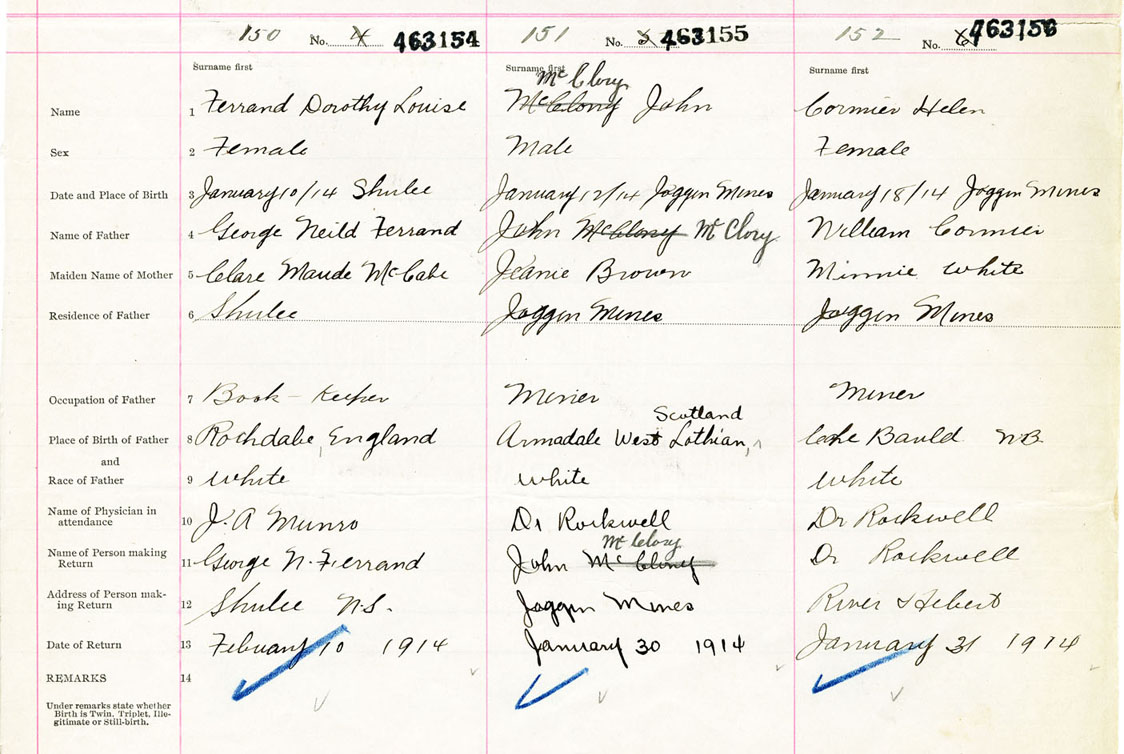 150 No. 4 463154 151 No. 5 463155 152 No. 6 463156
Surname first Surname first Surname first
Mc Clory
Name 1 Ferrand Dorothy Louise McClony John Cormier Helen
Sex 2 Female Male Female
Date and Place of Birth 3 January 10/14 Shulee January 12/14 Joggin Mines January 18/14 Joggin Mines
Name of Father 4 George Neild Ferrand John McClony McClory William Cormier
Maiden Name of Mother 5 Clare Maude McCabe Jeanie Brown Minnie White
Residence of Father 6 Shulee Joggin Mines Joggin Mines
Occupation of Father 7 Book-Keeper Miner Miner
Scotland
Place of Birth of Father 8 Rochdale, England Armadale West Lothian, Bauld N.B.
and
Race of Father 9 White White White
Name of Physician in
attendance 10 J. A Munro Dr Rockwell Dr Rockwell
Mc Clory
Name of Person making
Return 11 George N. Ferrand John McClony Dr Rockwell
Address of Person mak-
ing Return 12 Shulee N.S. Joggin Mines River Hebert
Date of Return 13 Febuary 10 1914 January 30 1914 January 31 1914
REMARKS 14
Under remarks state whether
Birth is Twin, Triplet, Ille-
gitimate or Still-birth.